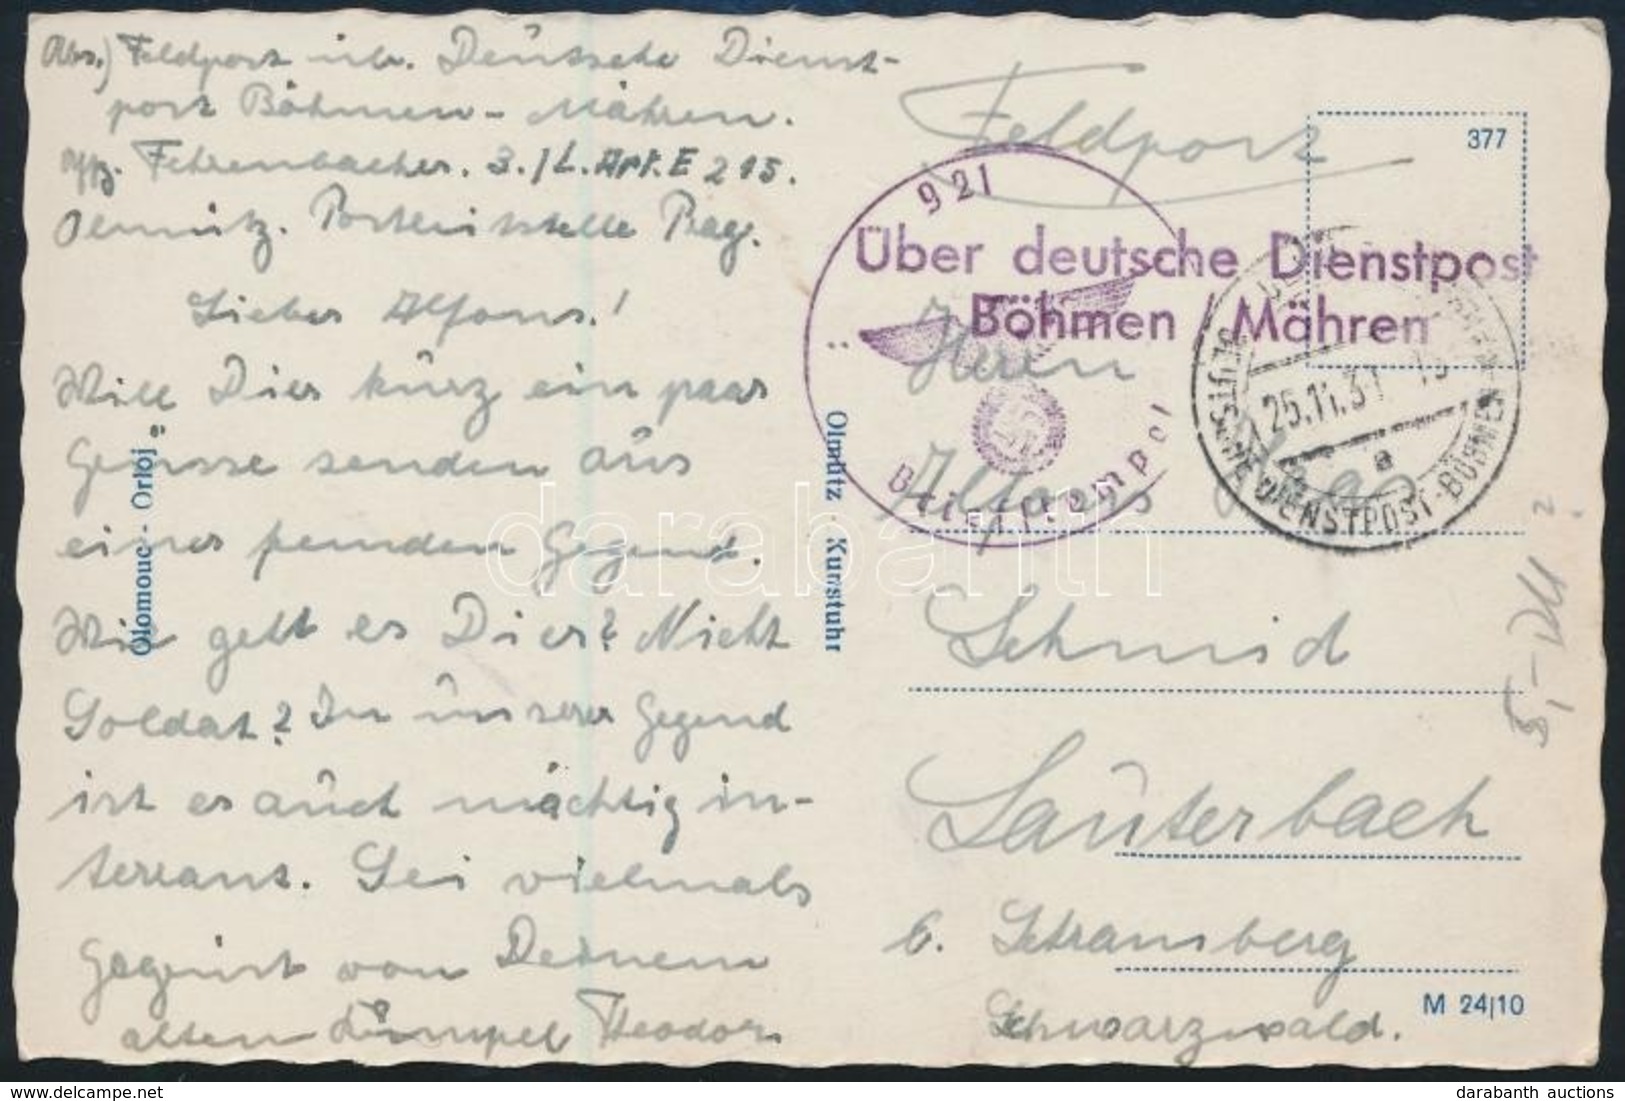 Abs.) Feldpost üb. Deutsche Dienst-
post Böhmen-Mähren.
Fehrenbacher. 3./L.Art.E 215.
Olmütz. Postleitstelle Prag.
Lieber Alfons!
Will Dier kurz ein paar
Grüsse senden aus
einer fremden Gegend.
Wie geht es Dier? Nicht
Soldat? In unserer Gegend
ist es auch mächtig in-
terrant. Sei vielmals
gegrüst von Deinem
alten Lümpel Theodor.
Olomouc - Orloj
Olmütz - Kunstuhr
Feldpost
377
921
Briefstempel
Über deutsche Dienstpost
Böhmen / Mähren
DEUTSCHE DIENSTPOST-BÖHMEN
25.11.39
a
Herrn
Alfons
Schmid
Lauterbach
b. Schramberg
Schwarzwald.
M 24/10
5,- DM ?
darabanth
darabanth auctions